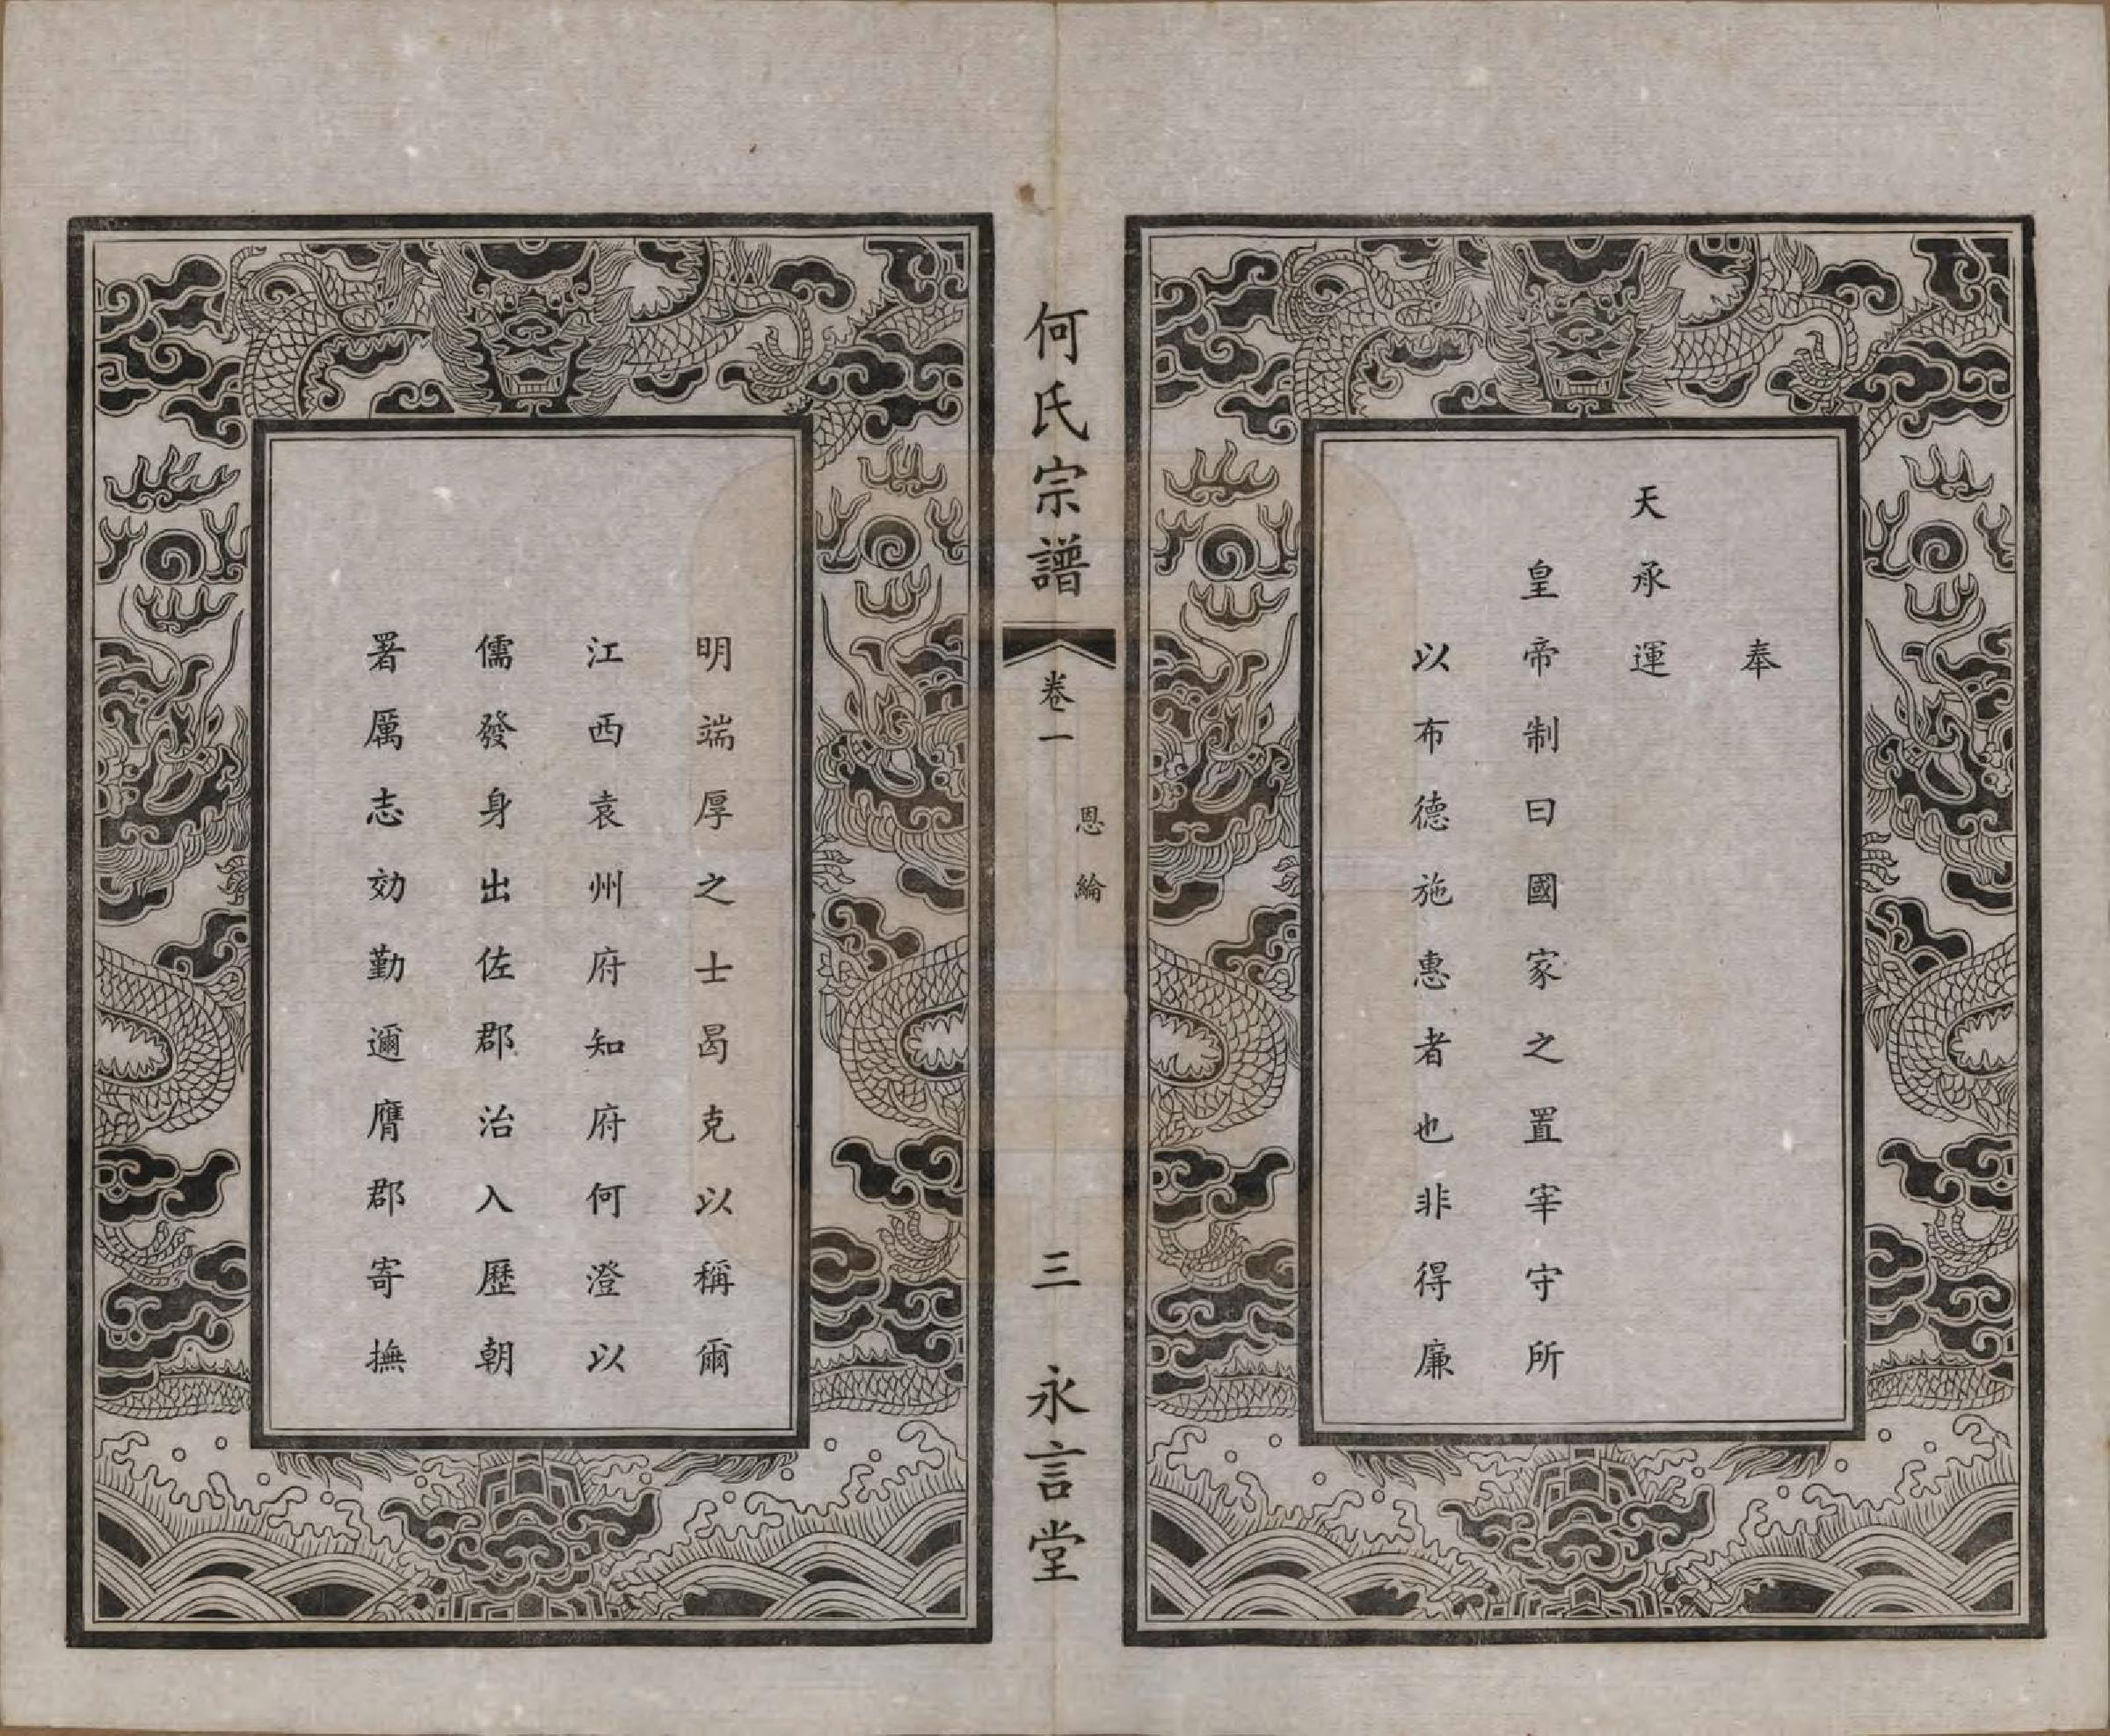 奉
天承運
皇帝制曰國家之置宰守所
以布德施惠者也非得廉
何氏宗譜
卷一
恩綸
三
永言堂
明端厚之士曷克以稱爾
江西袁州府知府何澄以
儒發身出佐郡治入歷朝
署厲志効勤邇膺郡寄撫